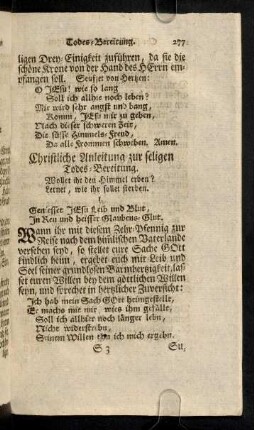 Todes-Bereitung. 277
ligen Drey-Einigkeit zuführen, da sie die
schöne Krone von der Hand des HErrn em-
pfangen soll. Seufzet von Hertzen:
O JEsu! wie so lang
Soll ich allhie noch leben?
Mir wird sehr angst und bang,
Komm, JEsu mir zu geben,
Nach dieser schweren Zeit,
Die süsse Himmels-Freud,
Da alle Frommen schweben. Amen.
Christliche Anleitung zur seligen
Todes-Bereitung.
Wollet ihr den Himmel erben?
Lernet, wie ihr sollet sterben.
1.
Geniesset JEsu Leib und Blut,
In Reu und heisser Glaubens-Glut.
Wann ihr mit diesem Zehr-Pfennig zur
Reise nach dem himlischen Vaterlande
versehen seyd, so stellet eure Sache GOtt
kindlich heim, ergebet euch mit Leib und
Seel seiner grundlosen Barmhertzigkeit, laß
set euren Willen bey dem göttlichen Willen
seyn, und sprechet in hertzlicher Zuversicht:
Ich hab mein Sach GOtt heimgestellt,
Er machs mit mir, wies ihm gefällt,
Soll ich allhier noch länger lebn,
Nicht widerstrebn,
Seinem Willen thu ich mich ergebn.
S 3 Su,